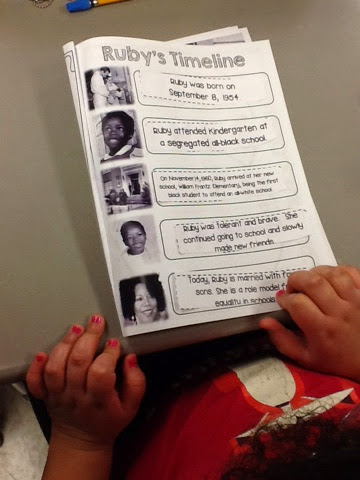 Ruby's Timeline
Ruby was born on
September 8, 1954.
Ruby attended Kindergarten at
a segregated all-black school.
On November 14, 1960, Ruby arrived at her new
school, William Frantz Elementary, being the first
black student to attend an all-white school.
Ruby was tolerant and brave. She
continued going to school and slowly
made new friends.
Today, Ruby is married with
sons. She is a role model
equality in schools